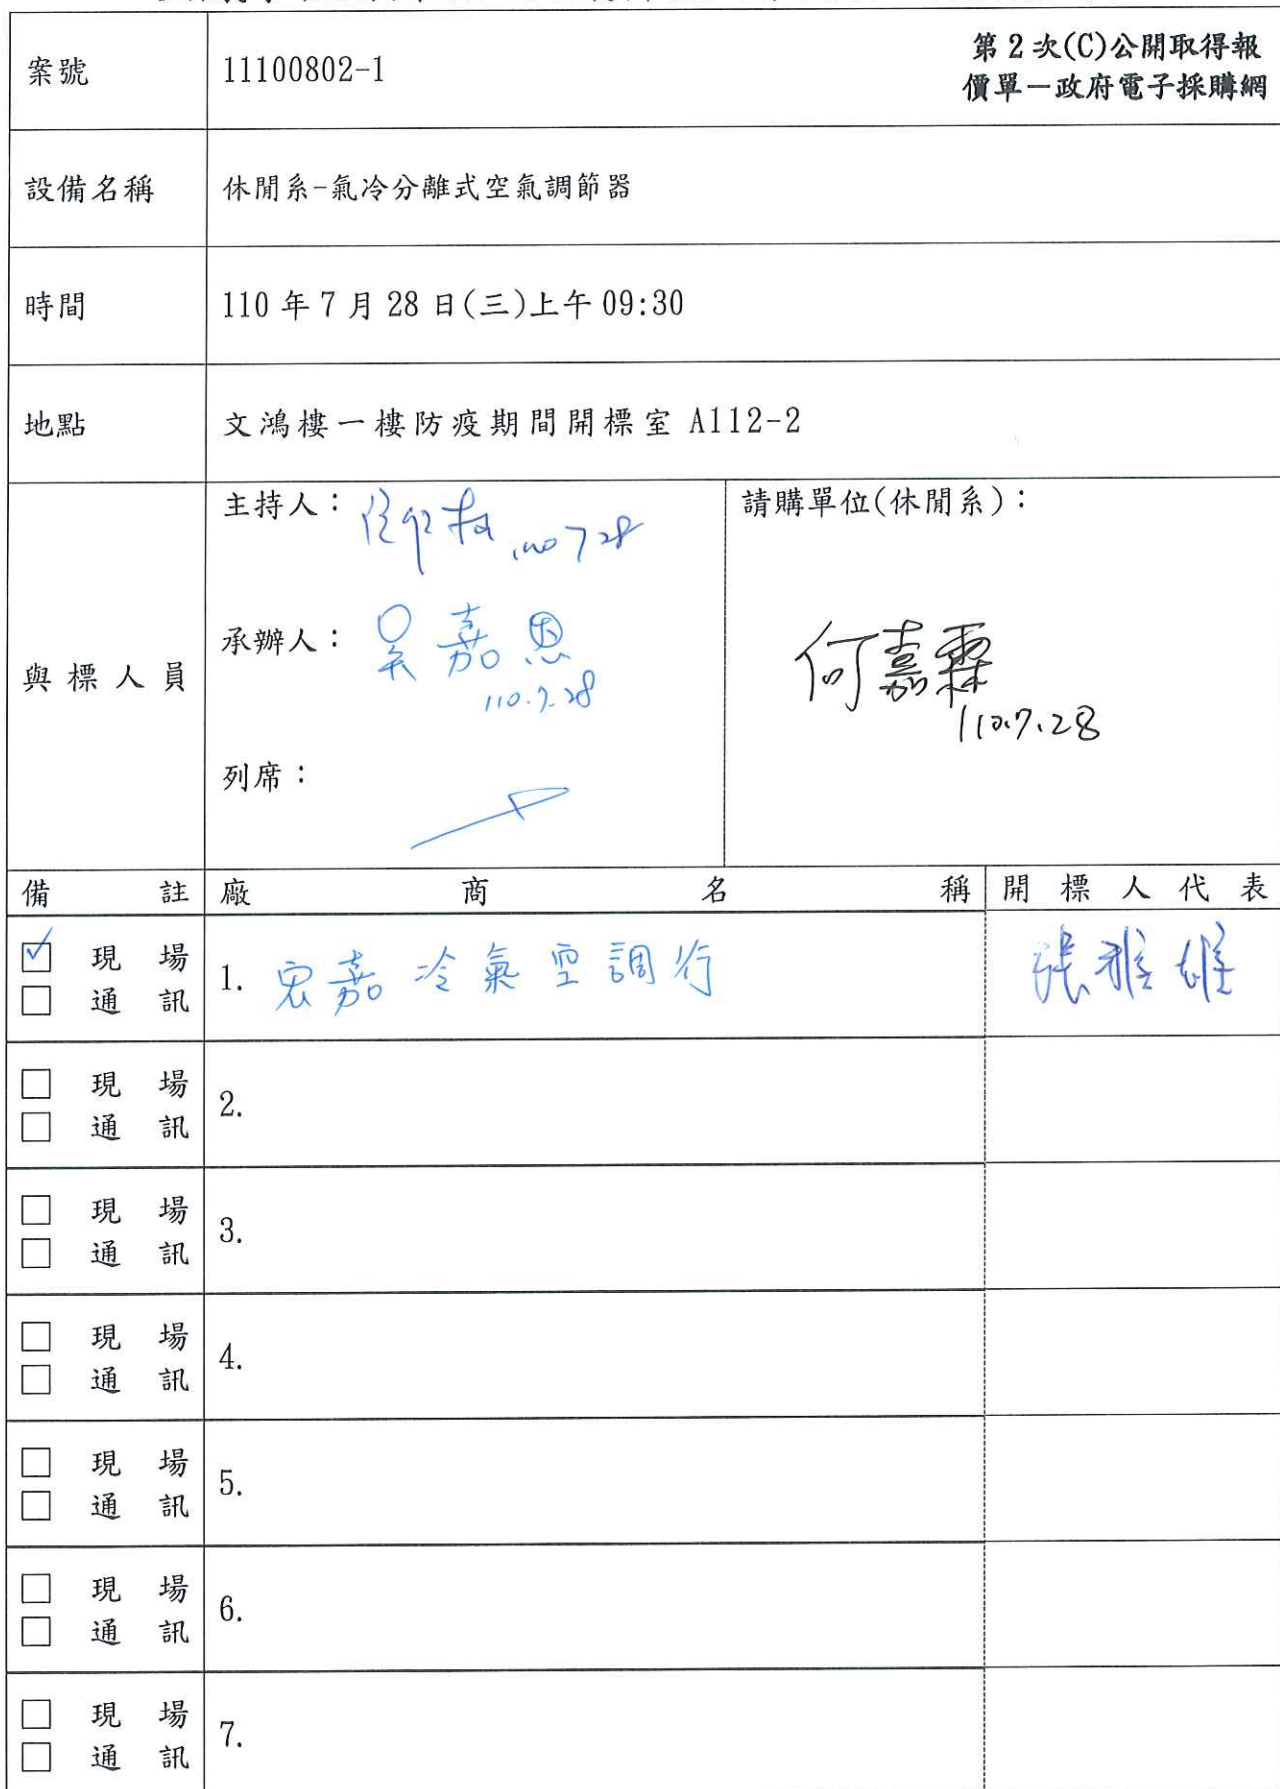 案號
11100802-1
第 2 次(C)公開取得報
價單－政府電子採購網
設備名稱
休閒系-氣冷分離式空氣調節器
時間
110 年 7 月 28 日(三)上午 09:30
地點
文鴻樓一樓防疫期間開標室 A112-2
與標人員
主持人：
承辦人：吳嘉恩
110.7.28
列席：
請購單位(休閒系)：
何嘉霖
110.7.28
備註 廠商名稱 開標人代表
現場
通訊
1. 宏嘉冷氣空調行
張雅雄
現場
通訊
2.
現場
通訊
3.
現場
通訊
4.
現場
通訊
5.
現場
通訊
6.
現場
通訊
7.